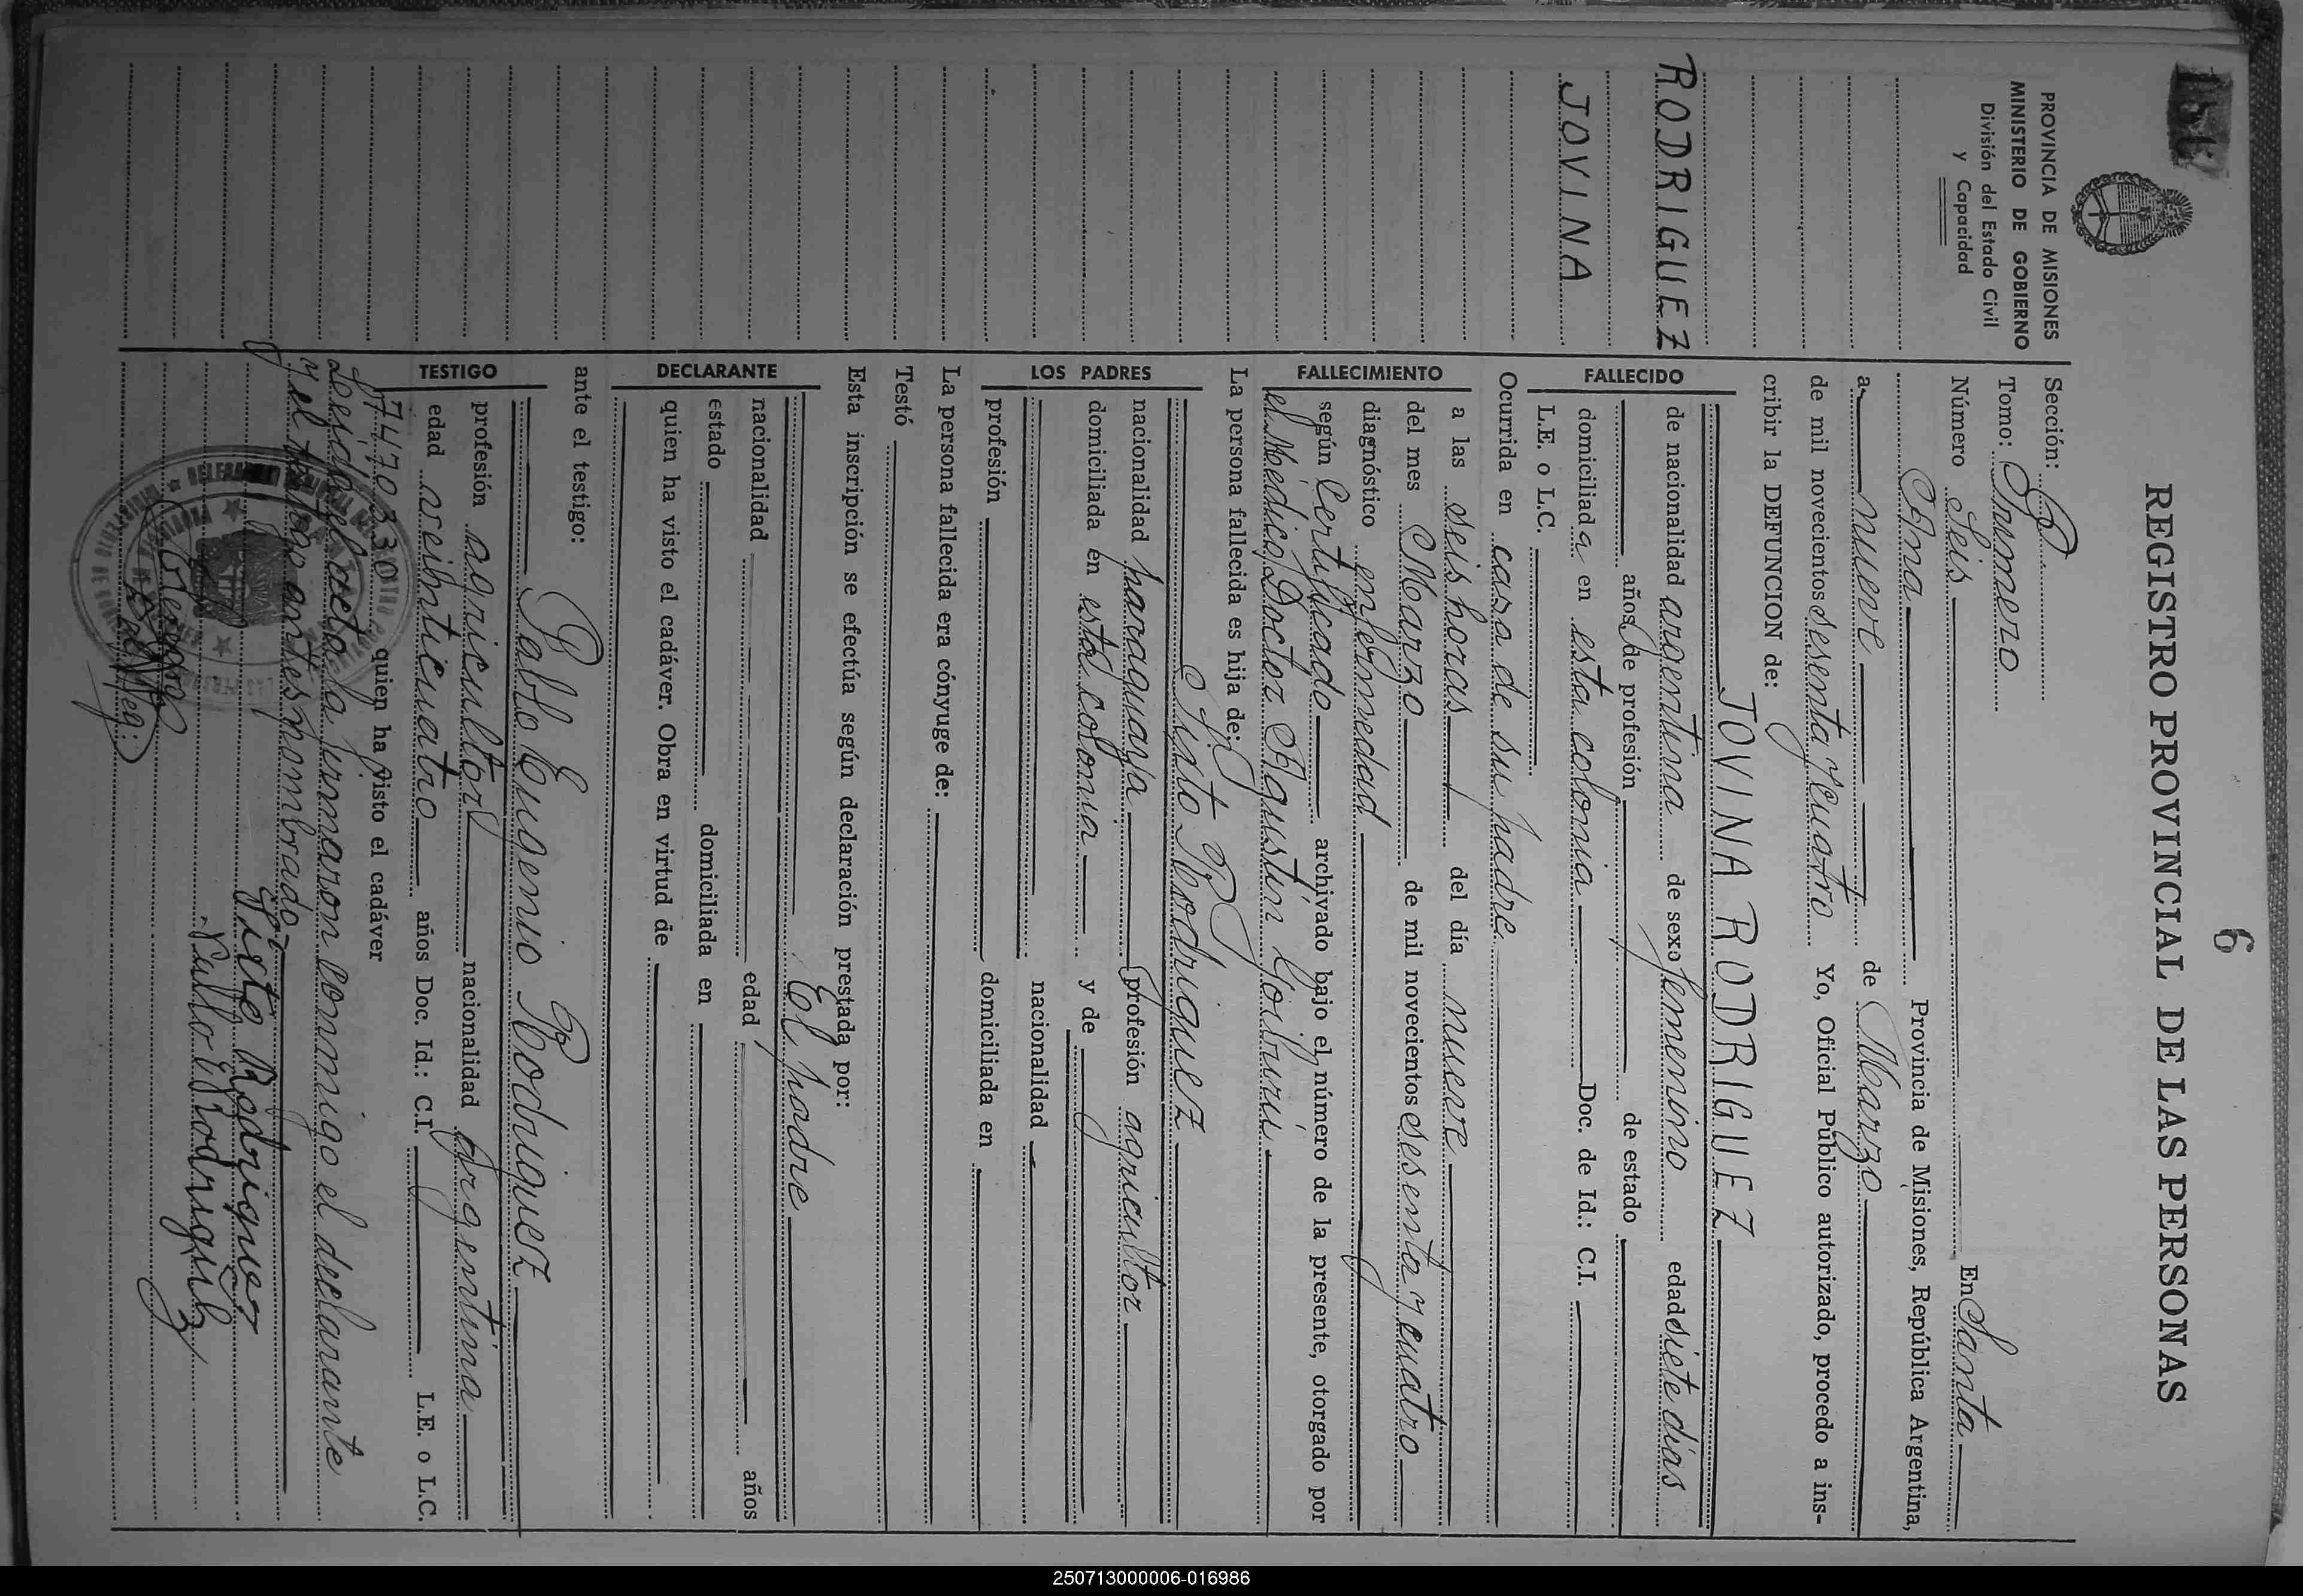 6
REGISTRO PROVINCIAL DE LAS PERSONAS
PROVINCIA DE MISIONES
MINISTERIO DE GOBIERNO
División del Estado Civil
y Capacidad
RODRIGUEZ
JOVINA
Sección:
Tomo: Primero
Número Seis En Santa
Ana Provincia de Misiones, República Argentina,
a nueve de Marzo
de mil novecientos sesenta y cuatro Yo, Oficial Público autorizado, procedo a ins-
cribir la DEFUNCION de:
JOVINA RODRIGUEZ
FALLECIDO
de nacionalidad argentina de sexo femenino edad siete días
años de profesión de estado
domiciliada en esta colonia Doc. de Id.: C.I.
L.E. o L.C.
Ocurrida en casa de su padre
FALLECIMIENTO
a las seis horas del día nueve
del mes Marzo de mil novecientos sesenta y cuatro
diagnóstico enfermedad
según Certificado archivado bajo el número de la presente, otorgado por
el Médico Doctor Agustín Goiburú
La persona fallecida es hija de:
Sixto Rodriguez
LOS PADRES
nacionalidad paraguaya profesión agricultor
domiciliada en esta colonia y de
nacionalidad
profesión domiciliada en
La persona fallecida era cónyuge de:
Testó
Esta inscripción se efectúa según declaración prestada por:
El padre
DECLARANTE
nacionalidad edad años
estado domiciliada en
quien ha visto el cadáver. Obra en virtud de
ante el testigo:
Pablo Eugenio Rodriguez
TESTIGO
profesión agricultor nacionalidad argentina
edad treinticuatro años Doc. Id.: C.I. L.E. o L.C.
7.470.330 quien ha visto el cadáver
Leída el acta la firmaron conmigo el declarante
y el testigo antes nombrado
Sixto Rodriguez
Pablo E Rodriguez
250713000006-016986